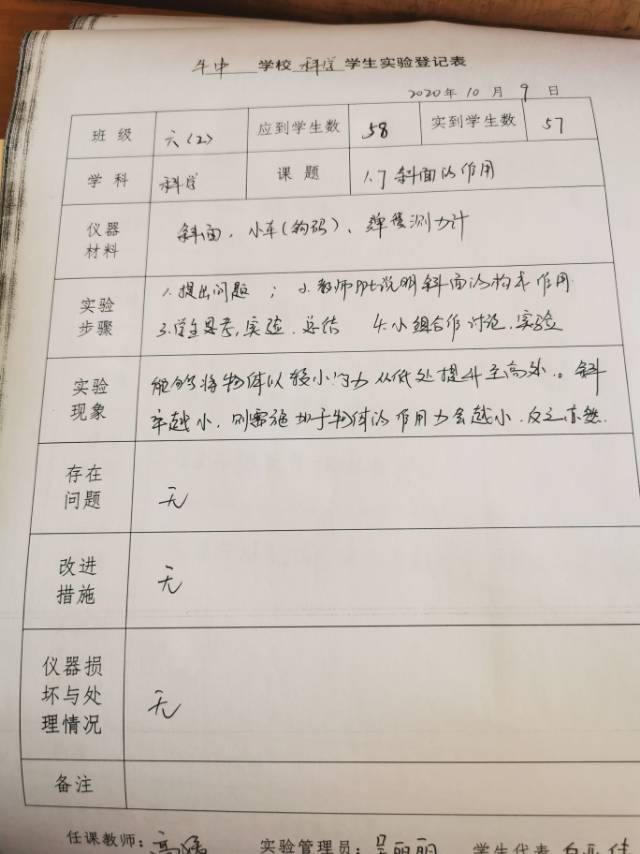 牛中 学校 科学 学生实验登记表
2020年 10 月 9 日
班级 六(2) 应到学生数 58 实到学生数 57
学科 科学 课题 1.7 斜面的作用
仪器材料 斜面、小车(钩码)、弹簧测力计
实验步骤 1.提出问题 ; 2.教师PPt说明斜面的构成作用
3.学生思考,实验、总结 4.小组合作讨论、实验
实验现象 能够将物体以较小的力从低处提升至高处。斜
率越小,则需施加于物体的作用力会越小,反之亦然.
存在问题 无
改进措施 无
仪器损坏与处理情况 无
备注
任课教师: 高 实验管理员: 吴丽丽 学生代表